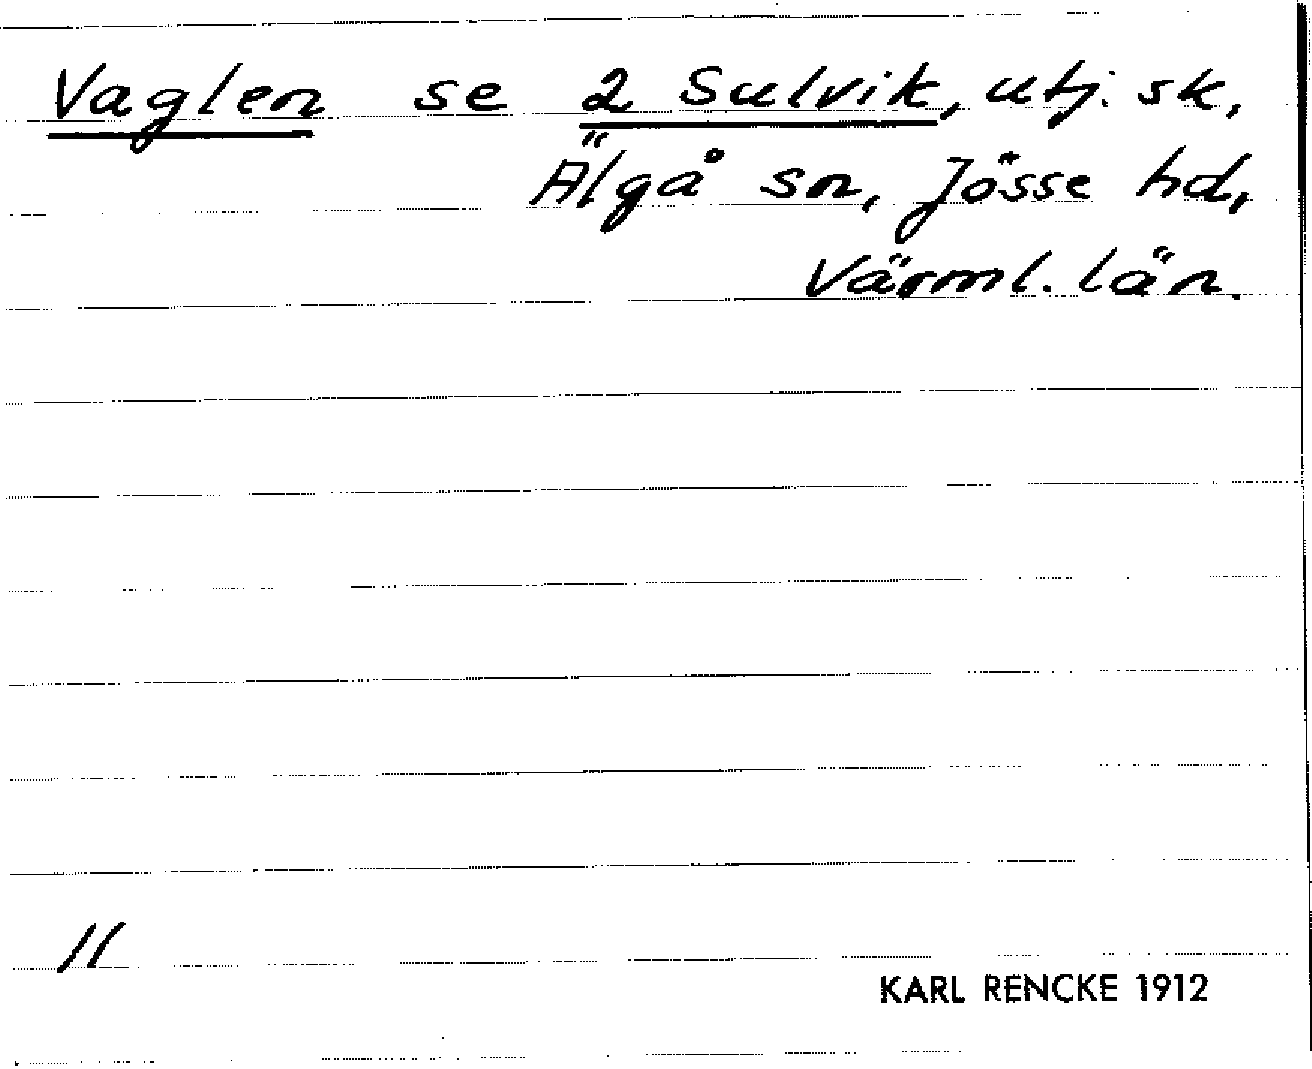 Vaglen se 2 Sulvik, utj. sk,
Älgå sn, Jösse hd,
Värml. län.
11
KARL RENCKE 1912